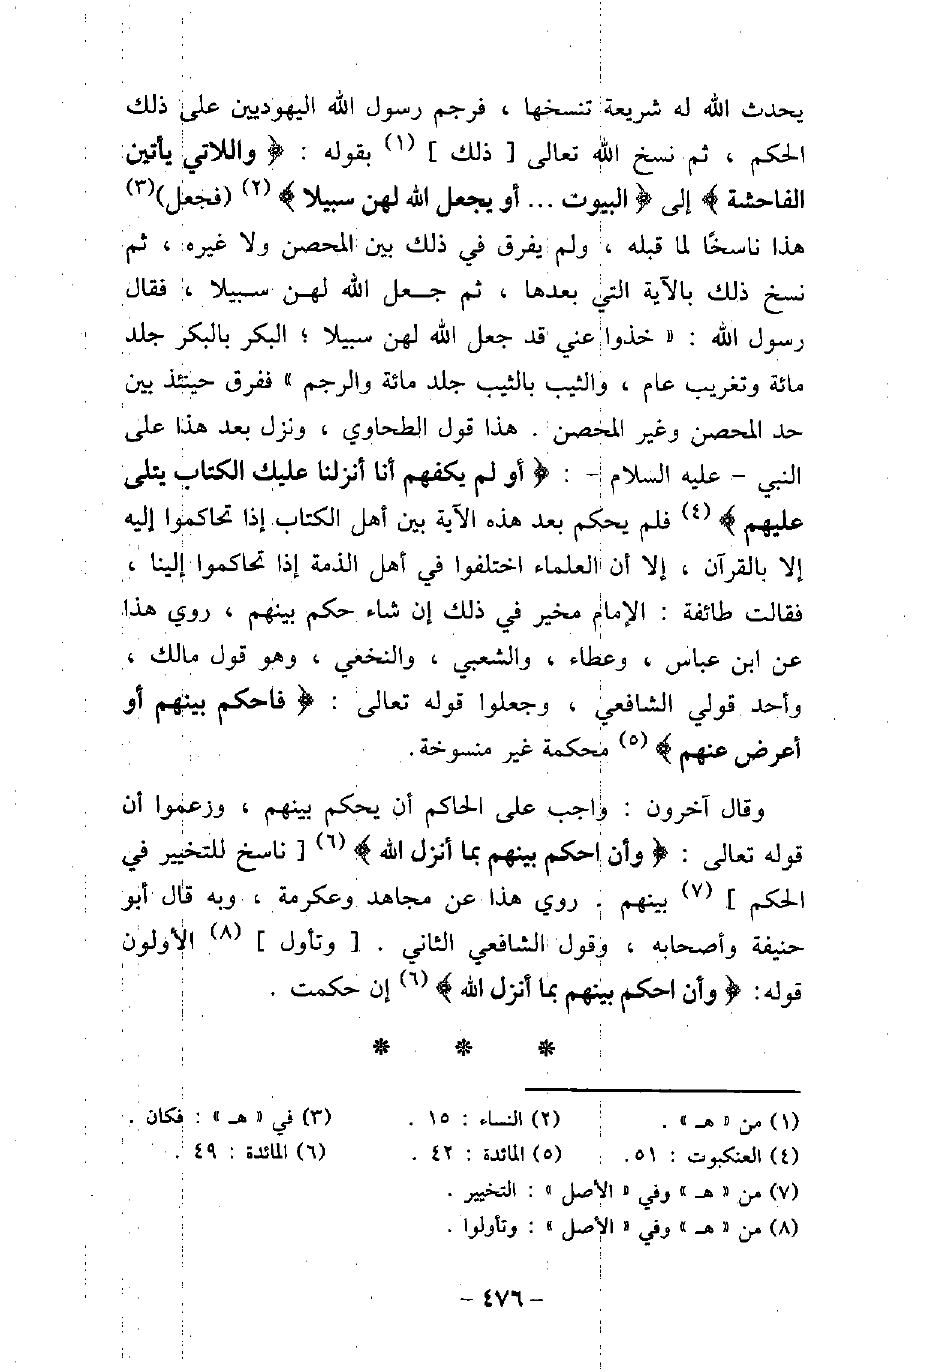 يحدث الله له شريعة تنسخها ، فرجم رسول الله اليهوديين على ذلك
الحكم ، ثم نسخ الله تعالى [ ذلك ] (١) بقوله : ﴿ واللاتي يأتين
الفاحشة ﴾ إلى ﴿ البيوت ... أو يجعل الله لهن سبيلا ﴾ (٢) (فجعل)(٣)
هذا ناسخًا لما قبله ، ولم يفرق في ذلك بين المحصن ولا غيره ، ثم
نسخ ذلك بالآية التي بعدها ، ثم جعل الله لهن سبيلا ، فقال
رسول الله : « خذوا عني قد جعل الله لهن سبيلا ؛ البكر بالبكر جلد
مائة وتغريب عام ، والثيب بالثيب جلد مائة والرجم » ففرق حينئذ بين
حد المحصن وغير المحصن . هذا قول الطحاوي ، ونزل بعد هذا على
النبي - عليه السلام - : ﴿ أو لم يكفهم أنا أنزلنا عليك الكتاب يتلى
عليهم ﴾ (٤) فلم يحكم بعد هذه الآية بين أهل الكتاب إذا تحاكموا إليه
إلا بالقرآن ، إلا أن العلماء اختلفوا في أهل الذمة إذا تحاكموا إلينا ،
فقالت طائفة : الإمام مخير في ذلك إن شاء حكم بينهم ، روي هذا
عن ابن عباس ، وعطاء ، والشعبي ، والنخعي ، وهو قول مالك ،
وأحد قولي الشافعي ، وجعلوا قوله تعالى : ﴿ فاحكم بينهم أو
أعرض عنهم ﴾ (٥) محكمة غير منسوخة .
وقال آخرون : واجب على الحاكم أن يحكم بينهم ، وزعموا أن
قوله تعالى : ﴿ وأن احكم بينهم بما أنزل الله ﴾ (٦) [ ناسخ للتخيير في
الحكم ] (٧) بينهم . روي هذا عن مجاهد وعكرمة ، وبه قال أبو
حنيفة وأصحابه ، وقول الشافعي الثاني . [ وتأول ] (٨) الأولون
قوله : ﴿ وأن احكم بينهم بما أنزل الله ﴾ (٦) إن حكمت .
* * *
(١) من « هـ » . (٢) النساء : ١٥ . (٣) في « هـ » : فكان .
(٤) العنكبوت : ٥١ . (٥) المائدة : ٤٢ . (٦) المائدة : ٤٩ .
(٧) من « هـ » وفي « الأصل » : التخيير .
(٨) من « هـ » وفي « الأصل » : وتأولوا .
- ٤٧٦ -